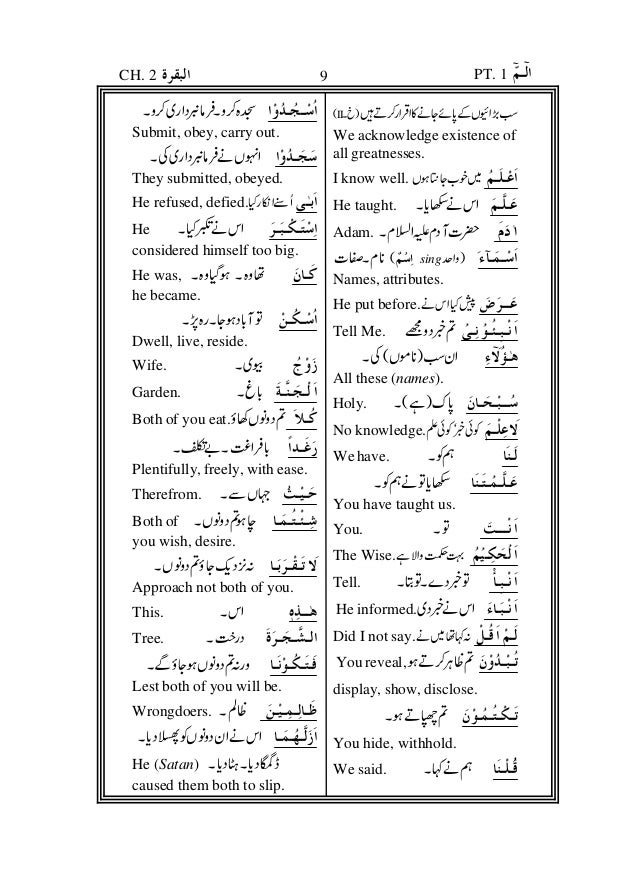 CH. 2 البقرة 9 PT. 1 الٓـمّٓ
سب بڑائیوں کے پائے جانے کا اقرار کرتے ہیں (خ-II)
We acknowledge existence of
all greatnesses.
اَعْلَمُ میں خوب جانتا ہوں I know well.
عَلَّمَ اس نے سکھایا۔ He taught.
اٰدَمَ حضرت آدم علیہ السلام۔ Adam.
اَسْمَآءَ (واحد sing اِسْمٌ) نام۔ صفات
Names, attributes.
عَرَضَ پیش کیا اس نے He put before.
اَنْبِئُوْنِیْ تم خبر دو مجھے Tell Me.
هٰٓؤُلَآءِ ان سب (ناموں) کی۔
All these (names).
سُبْحَانَ پاک (ہے)۔ Holy.
لَا عِلْمَ کوئی خبر کوئی علم No knowledge.
لَنَا ہم کو۔ We have.
عَلَّمْتَنَا سکھایا تو نے ہم کو۔
You have taught us.
اَنْتَ تو۔ You.
اَلْحَكِيْمُ بہت حکمت والا ہے The Wise.
اَنْبِأْ تو خبر دے۔ تو بتا۔ Tell.
اَنْبَاَءَ اس نے خبر دی He informed.
لَمْ اَقُلْ نہ کہا تھا میں نے Did I not say.
تُبْدُوْنَ تم ظاہر کرتے ہو You reveal,
display, show, disclose.
تَكْتُمُوْنَ تم چھپاتے ہو۔
You hide, withhold.
قُلْنَا ہم نے کہا۔ We said.
اُسْجُدُوْا سجدہ کرو۔ فرمانبرداری کرو۔
Submit, obey, carry out.
سَجَدُوْا انہوں نے فرمانبرداری کی۔
They submitted, obeyed.
اَبٰى اُسنے انکار کیا۔ He refused, defied.
اِسْتَكْبَرَ اس نے تکبر کیا۔ He
considered himself too big.
كَانَ تھا وہ۔ ہو گیا وہ۔ He was,
he became.
اُسْكُنْ تو آباد ہو جا۔ رہ پڑ۔
Dwell, live, reside.
زَوْجُ بیوی۔ Wife.
اَلْجَنَّةَ باغ۔ Garden.
كُلَا تم دونوں کھاؤ Both of you eat.
رَغَداً بافراغت۔ بے تکلف۔
Plentifully, freely, with ease.
حَيْثُ جہاں سے۔ Therefrom.
شِئْتُمَا چاہو تم دونوں۔ Both of
you wish, desire.
لَا تَقْرَبَا نہ نزدیک جاؤ تم دونوں۔
Approach not both of you.
هٰذِهٖ اس۔ This.
الشَّجَرَةَ درخت۔ Tree.
فَتَكُوْنَا ورنہ تم دونوں ہو جاؤ گے۔
Lest both of you will be.
ظَالِمِيْنَ ظالم۔ Wrongdoers.
اَزَلَّهُمَا اس نے ان دونوں کو پھسلا دیا۔
ڈگمگا دیا۔ ہٹا دیا۔ He (Satan)
caused them both to slip.